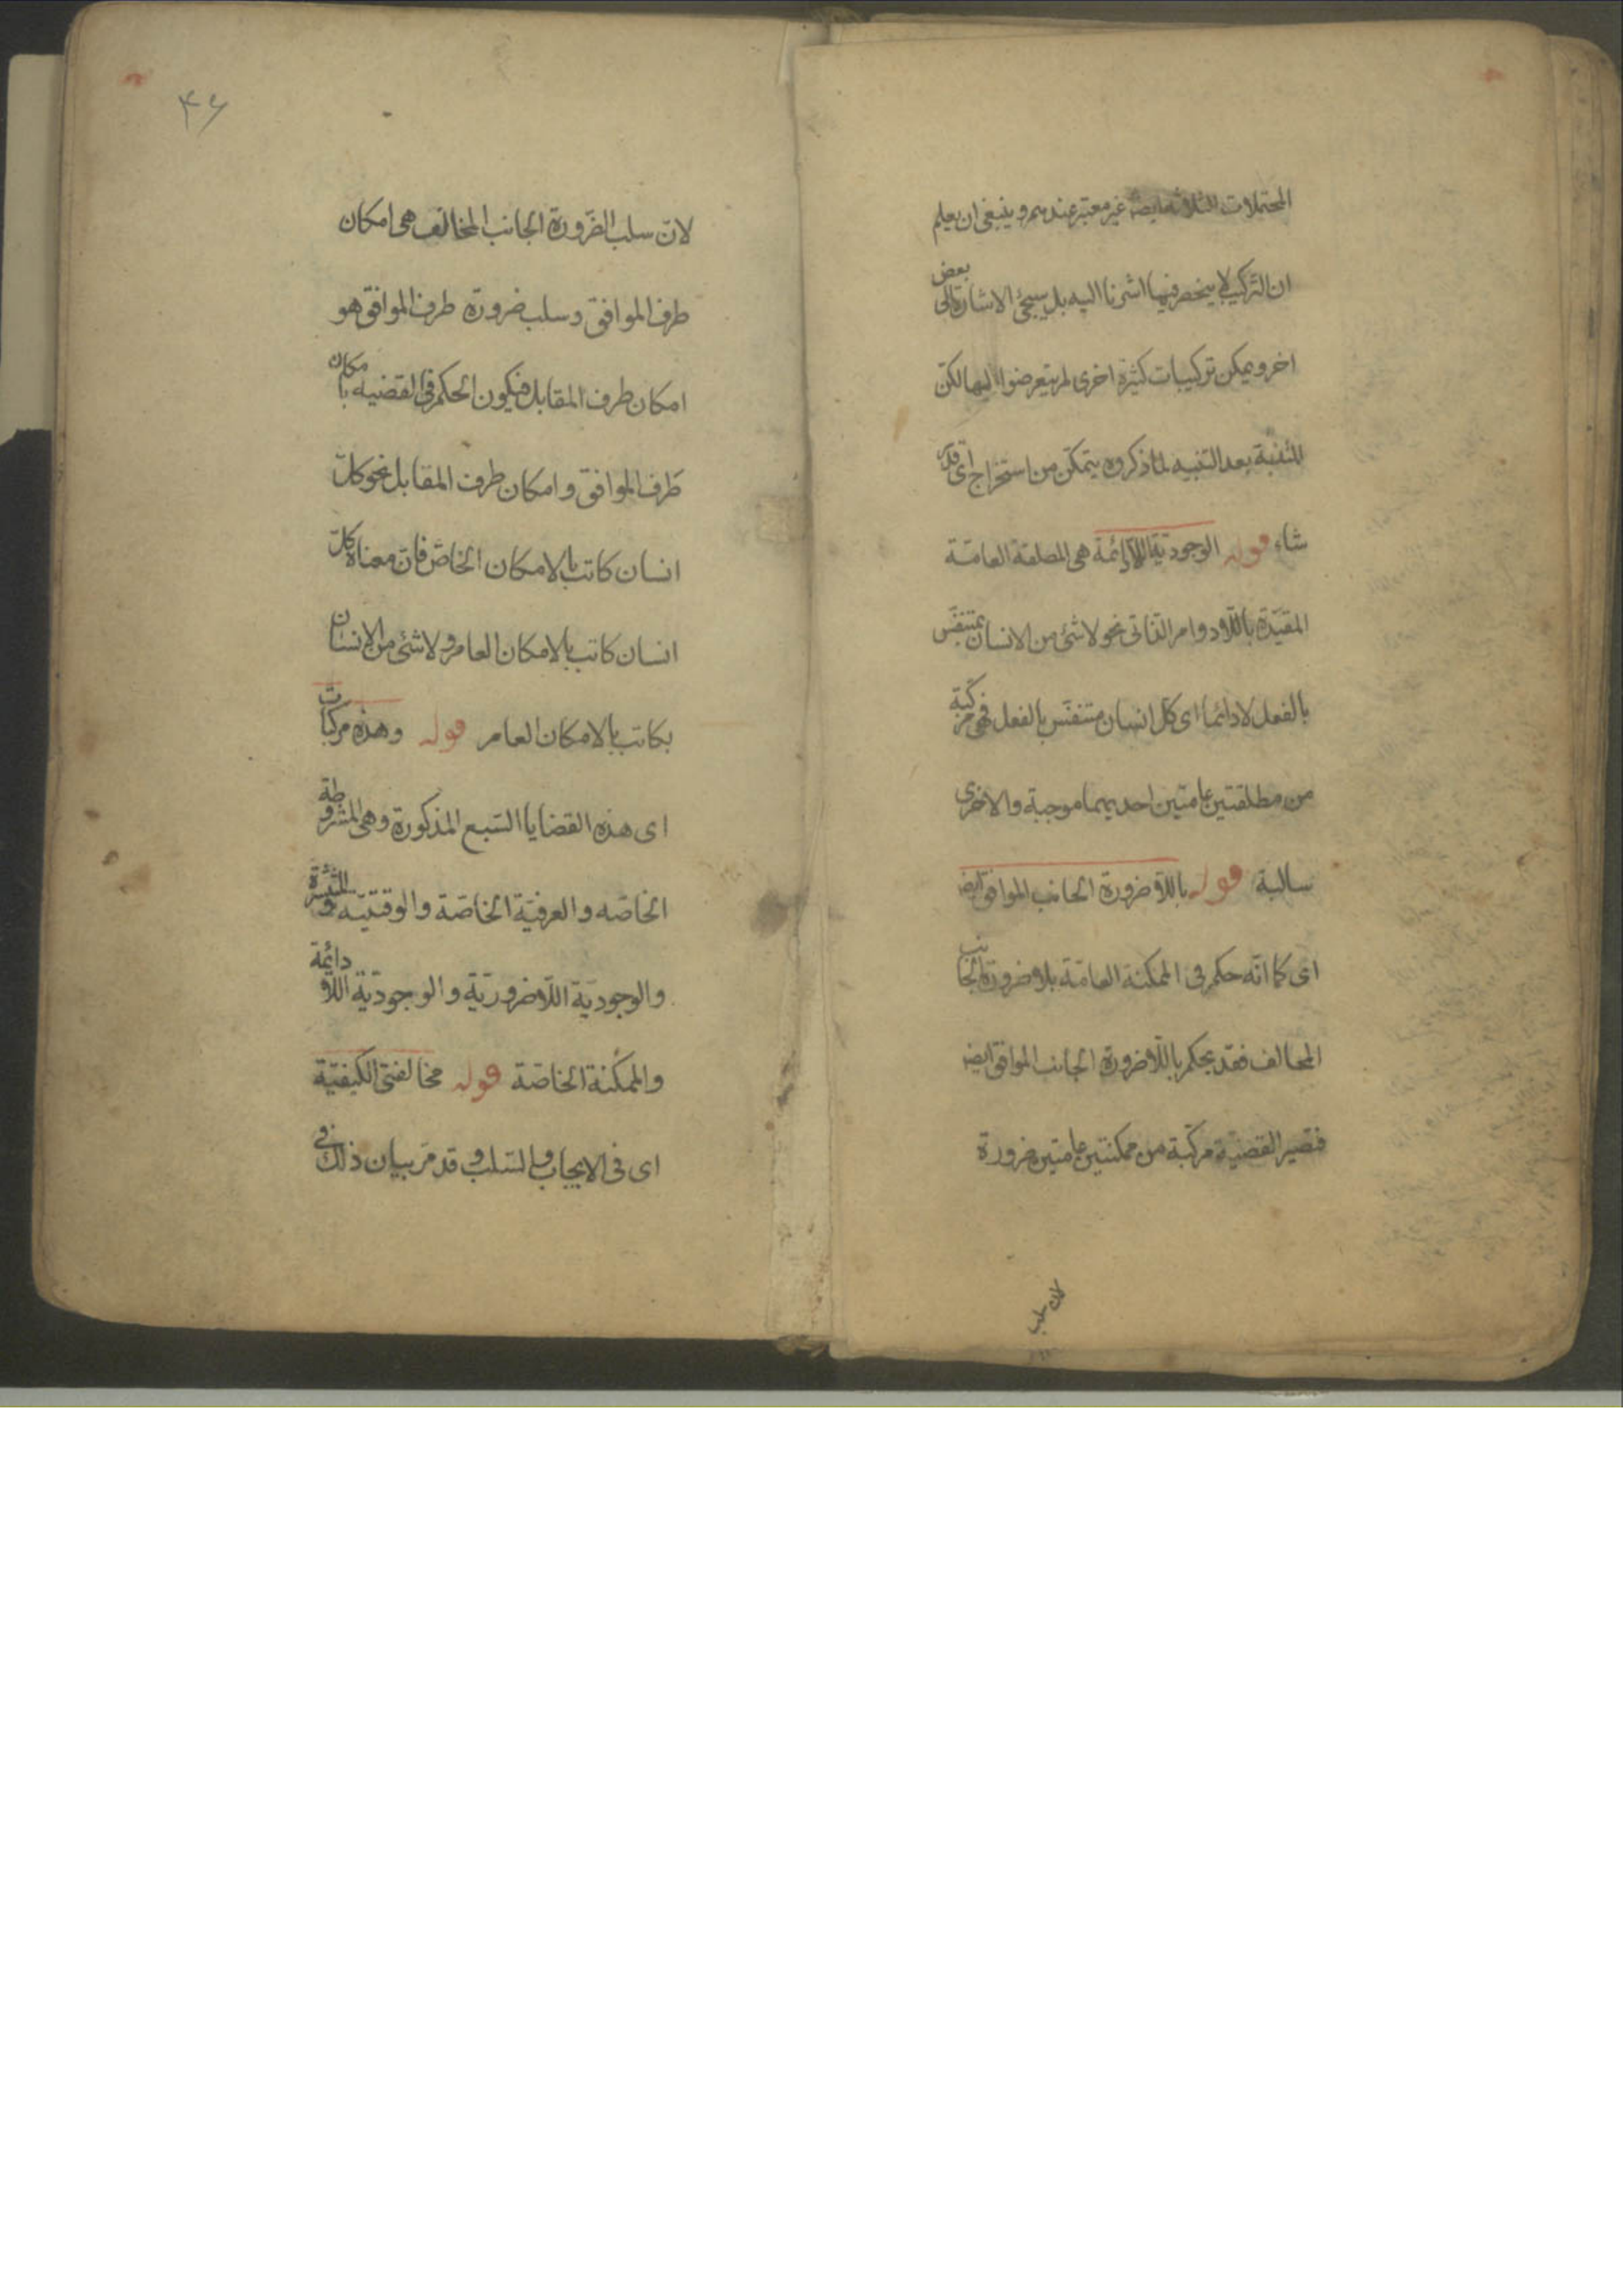 المحتملات الثلاثة ايضا غير معتبر عندهم وينبغى ان يعلم
ان التركيب لا ينحصر فيما اشرنا اليه بل سيجئ الاشارة الى بعض
اخر ويمكن تركيبات كثيرة اخرى لم يتعرضوا اليها لكن
المتنبه بعد التنبيه لما ذكروه يتمكن من استخراج اى قدر
شاء قوله الوجوديّة اللّادائمة هى المطلقة العامّة
المقيّدة باللّادوام الذاتى نحو لا شئ من الانسان بمتنفّس
بالفعل لا دائما اى كل انسان متنفّس بالفعل فهى مركّبة
من مطلقتين عامتين احديهما موجبة والاخرى
سالبة قوله باللّاضرورة الجانب الموافق ايض
اى كما انّه حكم فى الممكنة العامّة بلاضرورة الجانب
المخالف فقد يحكم باللّاضرورة الجانب الموافق ايض
فتصير القضيّة مركّبة من ممكنتين عامتين ضرورة
لان سلب
۴۶
لانّ سلب الضّرورة الجانب المخالف هى امكان
طرف الموافق وسلب ضرورة طرف الموافق هو
امكان طرف المقابل فيكون الحكم فى القضيه بامكان
طرف الموافق وامكان طرف المقابل نحو كلّ
انسان كاتب بالامكان الخاصّ فانّ معناه كلّ
انسان كاتب بالامكان العام ولا شئ من الانسان
بكاتب بالامكان العام قوله وهذه مركبات
اى هذه القضايا السّبع المذكورة وهى المشروطة
الخاصّه والعرفيّة الخاصّة والوقتيّه والمنتشرة
والوجوديّة اللّاضروريّة والوجوديّة اللّادائمة
والممكنة الخاصّة قوله مخالفتى الكيفيّة
اى فى الايجاب والسّلب وقد مرّ بيان ذلك فى